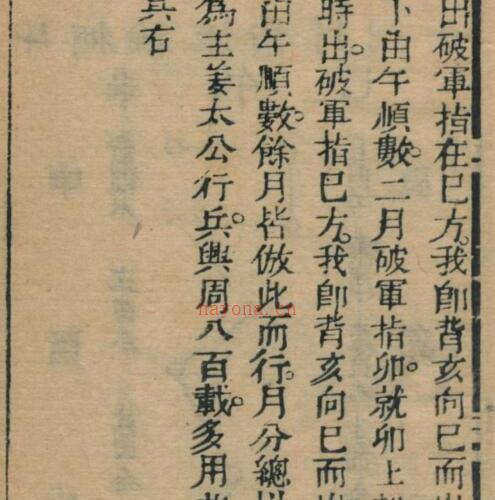 出破軍指在巳方。我卽背亥向巳而
由午順數。二月破軍指卯。就卯上
時出。破軍指巳方。我卽背亥向巳而
由午順數。餘月皆倣此而行。月分總
為主姜太公行兵。興周八百載。多用
其右
nayona.cn